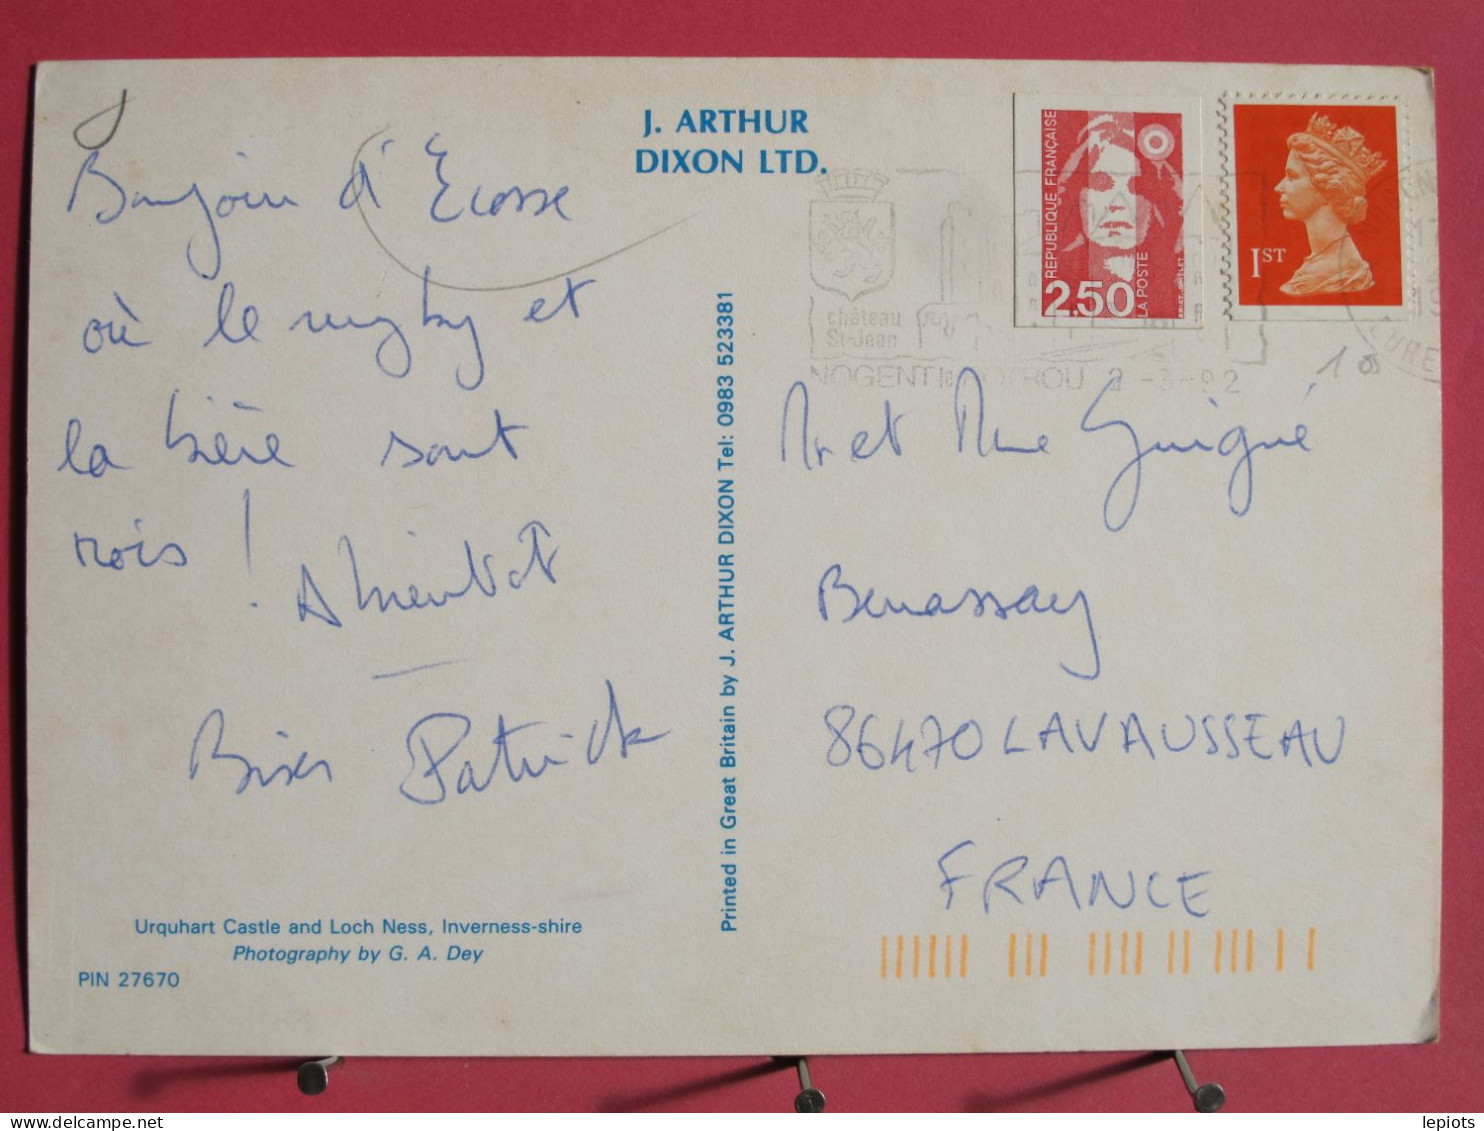 J. ARTHUR
DIXON LTD.
Bonjour d'Ecosse
où le rugby et
la bière sont
rois !
A bientôt
Bises Patrick
Urquhart Castle and Loch Ness, Inverness-shire
Photography by G. A. Dey
PIN 27670
Printed in Great Britain by J. ARTHUR DIXON Tel: 0983 523381
château
St-Jean
NOGENT le ROTROU 2 -3-92
REPUBLIQUE FRANÇAISE
2,50
LA POSTE
1ST
Mr et Mme Guigné
Benassay
86470 LAVAUSSEAU
FRANCE
lepiots